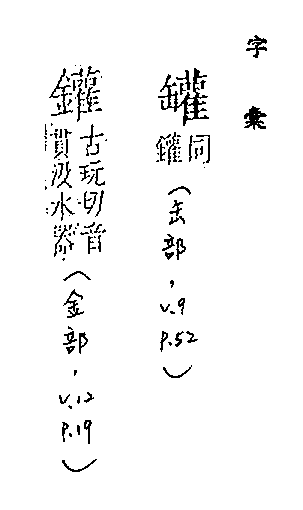 字彙
罐同鑵(缶部,v.9 p.52)
鑵古玩切音貫汲水器(金部,v.12 p.19)